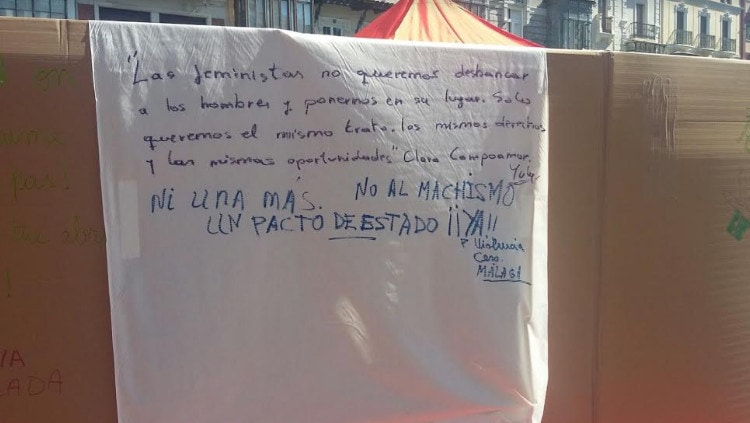 "Las feministas no queremos desbancar
a los hombres y ponernos en su lugar. Solo
queremos el mismo trato, los mismos derechos
y las mismas oportunidades" Clara Campoamor.
NI UNA MÁS. NO AL MACHISMO
UN PACTO DE ESTADO ¡¡YA!!
P. Violencia
Cero.
MÁLAGA